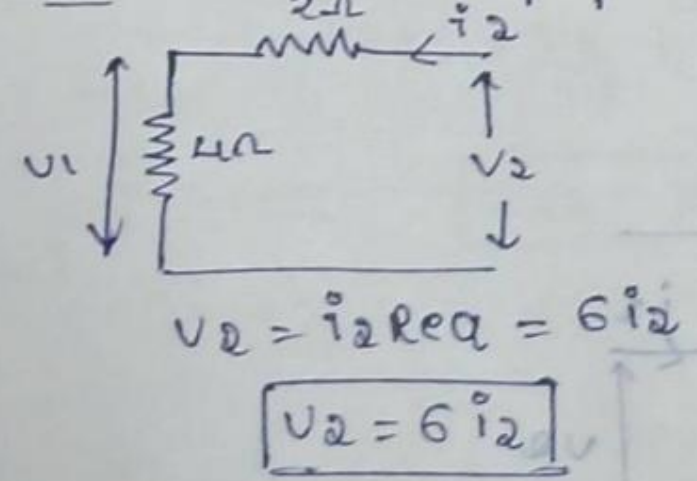 2Ω
i2
V1
4Ω
V2
V2 = i2 Req = 6 i2
V2 = 6 i2